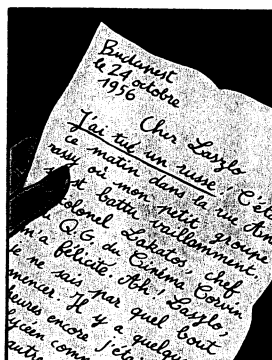 Budapest
le 24 octobre
1956
Cher Laszlo
J'ai tué un russe! C'ét
ce matin dans la rue Am
rassy où mon petit groupe
s'est battu vaillamment.
colonel Lakatos, chef
Q.G. du Cinéma Corvin
m'a félicité. Ah! Laszlo,
je ne sais par quel bout
mencer. Il y a quelque
eures encore j'éta
lycéen comm
autre